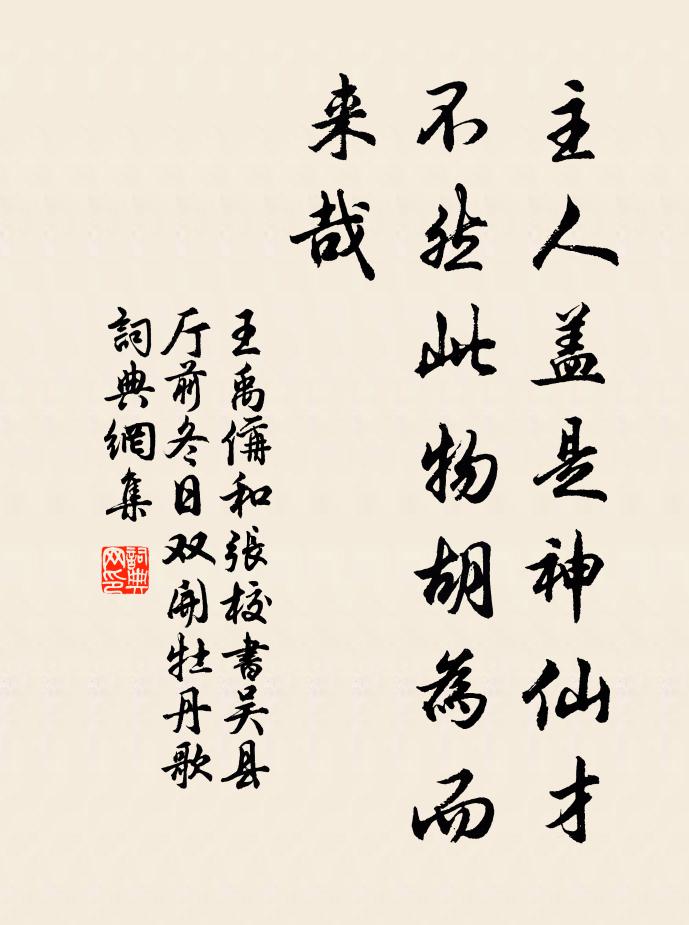 主人盖是神仙才
不然此物胡為而
来哉
王禹偁和張校書吴县
厅前冬日双開牡丹歌
詞典網集
詞典网印